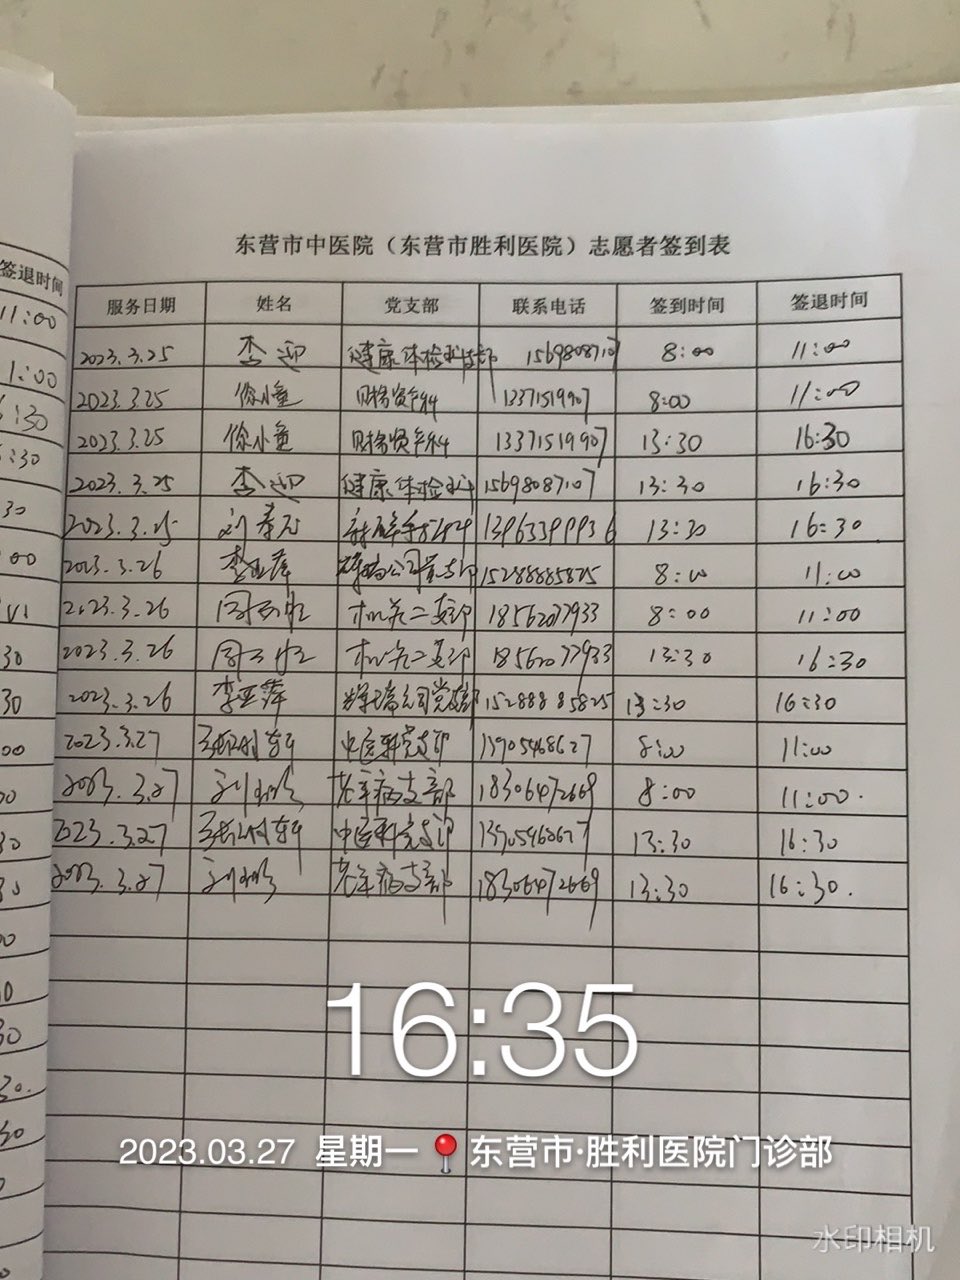 东营市中医院（东营市胜利医院）志愿者签到表
签退时间
服务日期 姓名 党支部 联系电话 签到时间 签退时间
11:00
2023.3.25 李迎 健康体检科支部 15698087107 8:00 11:00
1:00
2023.3.25 徐小童 财务资产科 13371519907 8:00 11:00
:30
2023.3.25 徐小童 财务资产科 13371519907 13:30 16:30
:30
2023.3.25 李迎 健康体检科 15698087107 13:30 16:30
30
2023.3.25 刘春元 13963399936 13:30 16:30
00
2023.3.26 李亚萍 15288885825 8:00 11:00
2023.3.26 机关二支部 18562077933 8:00 11:00
30
2023.3.26 机关二支部 18562077933 13:30 16:30
30
2023.3.26 李亚萍 公司党支部 15288885825 13:30 16:30
00
2023.3.27 中医科党支部 13905468627 8:00 11:00
2023.3.27 老年病支部 18306472669 8:00 11:00.
30
2023.3.27 中医科党支部 13905468627 13:30 16:30
30
2023.3.27 老年病支部 18306472669 13:30 16:30.
16:35
2023.03.27 星期一 东营市·胜利医院门诊部
水印相机